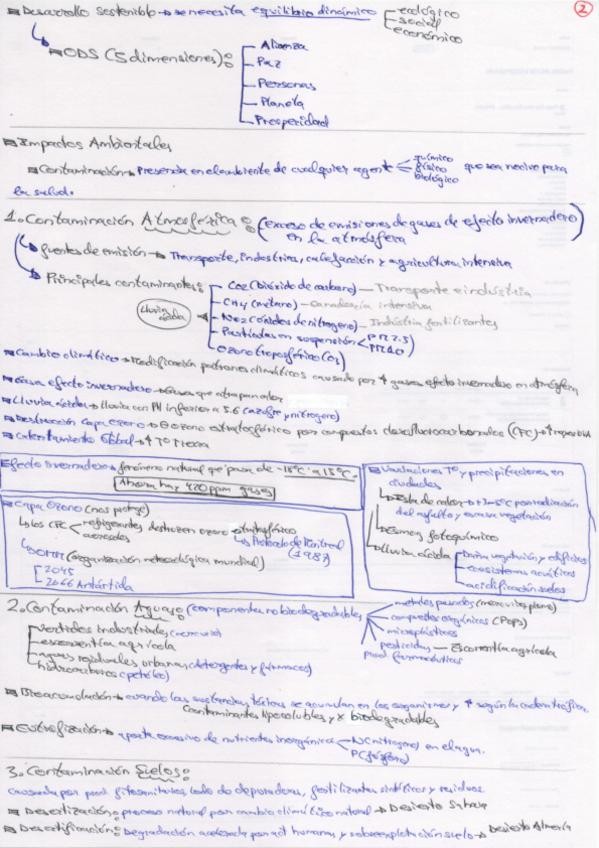 2
Desarrollo sostenible → se necesita equilibrio dinámico
ecológico
social
económico
ODS (5 dimensiones):
Alianza
Paz
Personas
Planeta
Prosperidad
Impactos Ambientales
Contaminación → Presencia en el ambiente de cualquier agente
químico
físico
biológico
que sea nocivo para
la salud.
1. Contaminación Atmosférica: (exceso de emisiones de gases de efecto invernadero)
en la atmósfera
fuentes de emisión → Transporte, industrias, calefacción y agricultura intensiva
Principales contaminantes:
CO2 (dióxido de carbono) — Transporte e indústria
CH4 (metano) — Ganadería intensiva
Lluvia ácida
NO2 (óxidos de nitrógeno) — Indústria fertilizantes
Partículas en suspensión
PM 2.5
PM 10
Ozono troposférico (O3)
Cambio climático → Modificación patrones climáticos causado por ↑ gases efecto invernadero en atmósfera
Gases efecto invernadero → Gases que atrapan calor
Lluvia ácida → Lluvia con PH inferior a 5.6 (azofre y nitrogeno)
Destrucción Capa Ozono → ozono estratosférico por compuestos clorofluorocarbonados (CFC) →
Calentamiento Global → ↑ Tº Tierra
Efecto invernadero → fenómeno natural que pasa de -18°C a 15°C.
Ahora hay 420 ppm gases
Capa Ozono (nos protege)
Los CFC
refrigerantes
aerosoles
destruyen ozono estratosférico
Protocolo de Montreal
(1987)
OMM (organización meteorológica mundial)
2045
2066 Antártida
Variaciones Tº y precipitaciones en
ciudades
Isla de calor → por radiación
del asfalto y escasa vegetación
fotoquímico
Lluvia ácida
Daña vegetación y edificios
ecosistemas acuáticos
acidificación suelos
2. Contaminación Aguas: (componentes no biodegradables
metales pesados (mercurio, plomo)
compuestos orgánicos (POPs)
microplásticos
pesticidas → Escorrentía agrícola
prod. farmacéuticos
vertidos industriales (mercurio)
escorrentía agrícola
aguas residuales urbanas (detergentes y fármacos)
hidrocarburos (petróleo)
Bioacumulación → cuando las sustancias tóxicas se acumulan en los organismos y ↑ según la cadena trófica.
Contaminantes liposolubles y x biodegradables
Eutrofización → aporte excesivo de nutrientes inorgánicos
N (nitrógeno)
P (fósforo)
en el agua.
3. Contaminación Suelos:
Causada por prod. fitosanitarios, lodo de depuradoras, fertilizantes sintéticos y residuos
Desertización: proceso natural por cambio climático natural → Desierto Sahara
Desertificación: Degradación acelerada por act humanas y sobreexplotación suelo → Desierto Almería